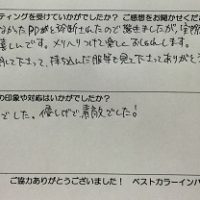 ティングを受けていかがでしたか？ ご感想をお聞かせくださ
なかったPDがを診断されたので驚きましたが、
嬉しいです。メリハリつけて楽しくおしゃれします。
して下さって、持ち込んだ服等を見て下さってありがとう
の印象や対応はいかがでしたか？
でした。優しげで素敵でした！
ご協力ありがとうございました！ ベストカラーインパ